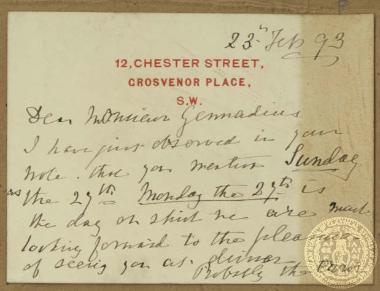 23rd Feb 93
12, CHESTER STREET,
GROSVENOR PLACE,
S.W.
Dear Monsieur Gennadius
I have just observed in your
note that you mention Sunday
as the 27th Monday the 27th is
the day on which we are much
looking forward to the pleasure
of seeing you at dinner
Probably the error